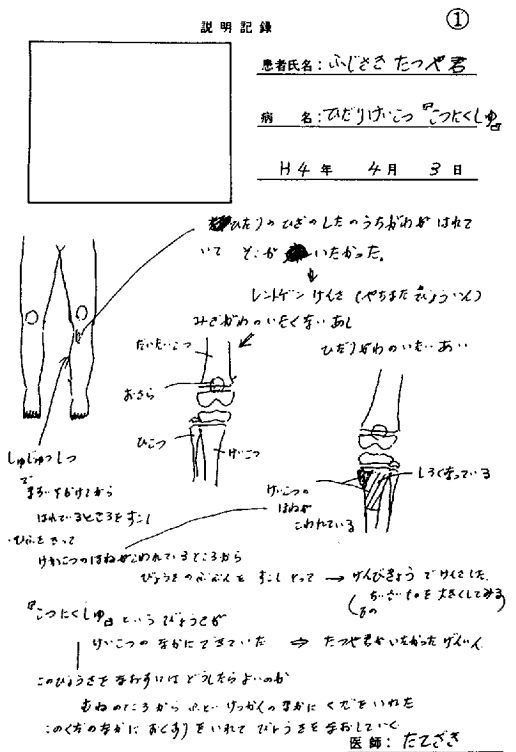 ①
説明記録
患者氏名：ふじさき たつや君
病　名：ひだりけいこつ『こつにくしゅ』
H4年 4月 3日
ひだりの ひざの したの うちがわが はれて
いて そこが いたかった。
レントゲン けんさ (やちまた びょういん)
みぎがわの いたくない あし
ひだりがわの いたい あし
だいたいこつ
おさら
ひこつ
けいこつ
しろくなっている
けいこつの
ほねが
こわれている
しゅじゅつしつ
で
ますいをかけてから
はれているところをすこし
ひふをきって
けいこつのほねがこわれているところから
びょうきのぶぶんを すこし とって → けんびきょう で けんさした。
(ちいさいものを 大きくしてみる
もの)
『こつにくしゅ』という びょうきが
けいこつの なかに できていた ⇒ たつや君が いたかった げんいん
このびょうきを なおすには どうしたら よいのか
むねのところから ふとい けっかんの なかに くだを いれた
このくだの なかに おくすりを いれて びょうきを なおしていく
医師：たてざき